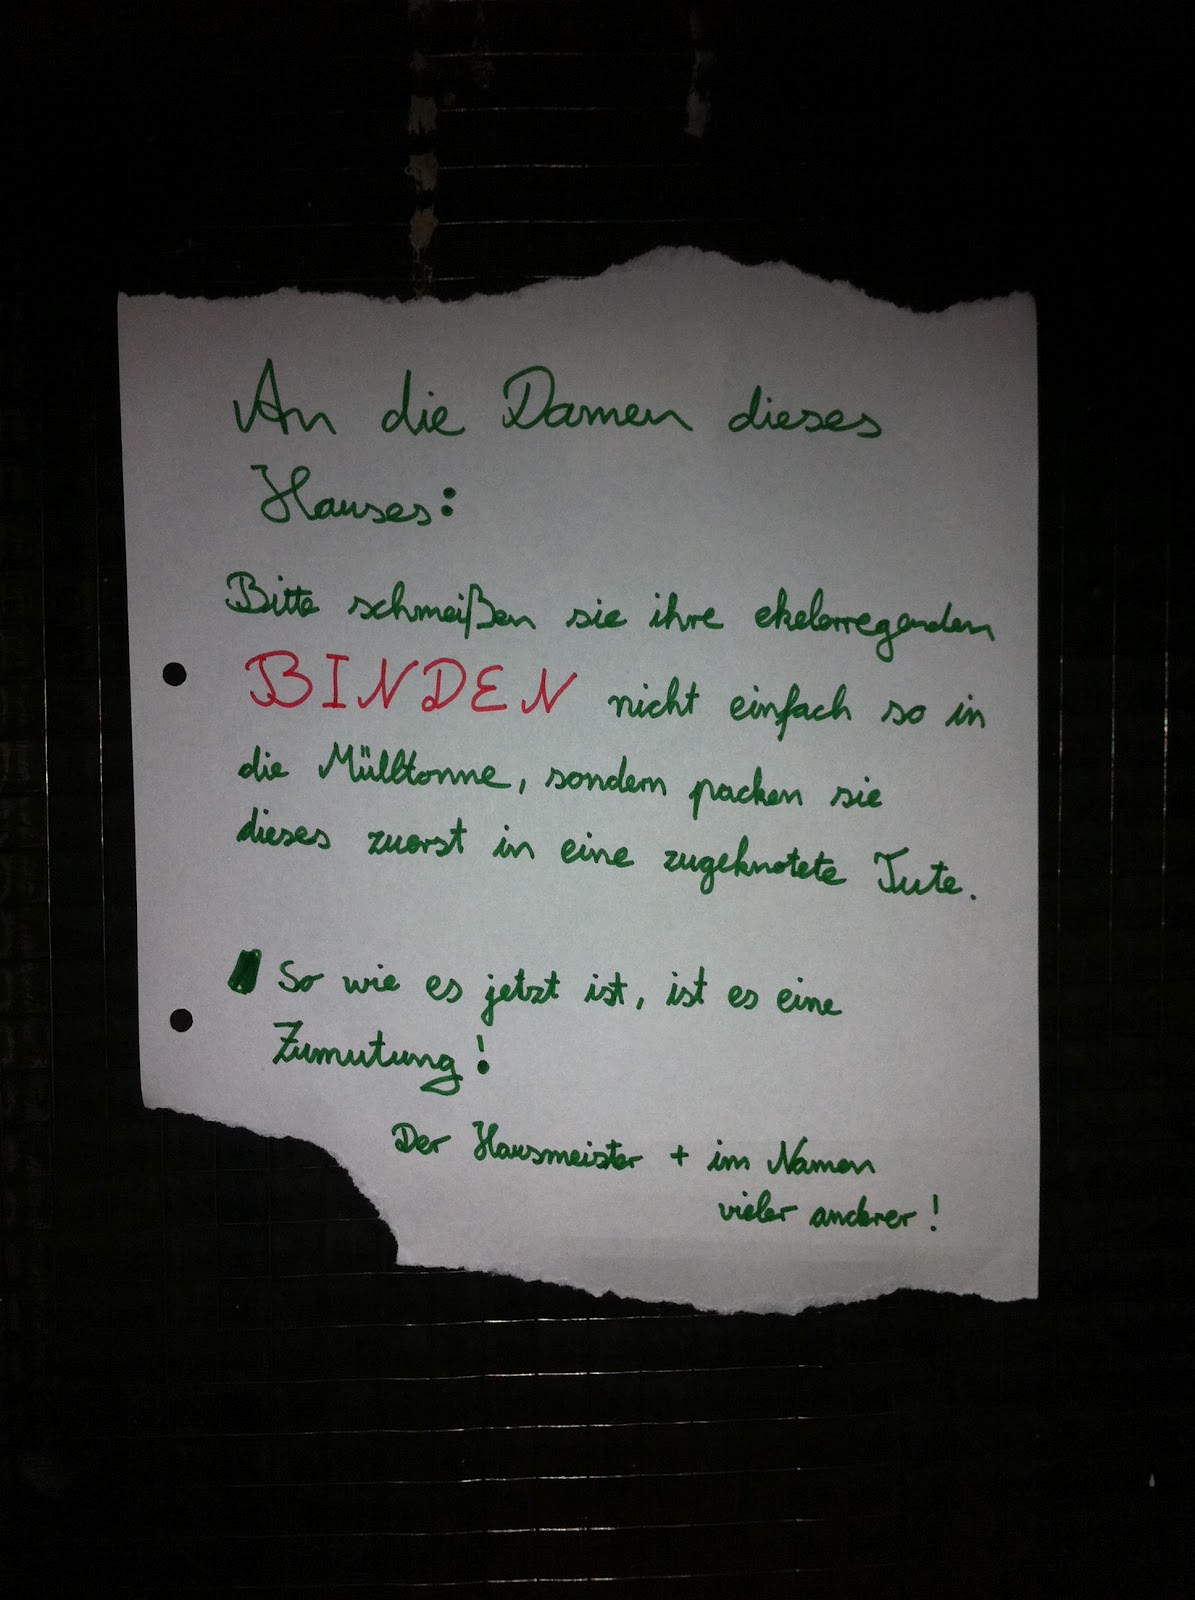 An die Damen dieses
Hauses:
Bitte schmeißen sie ihre ekelerregenden
BINDEN nicht einfach so in
die Mülltonne, sondern packen sie
dieses zuerst in eine zugeknotete Tute.
So wie es jetzt ist, ist es eine
Zumutung!
Der Hausmeister + im Namen
vieler anderer!